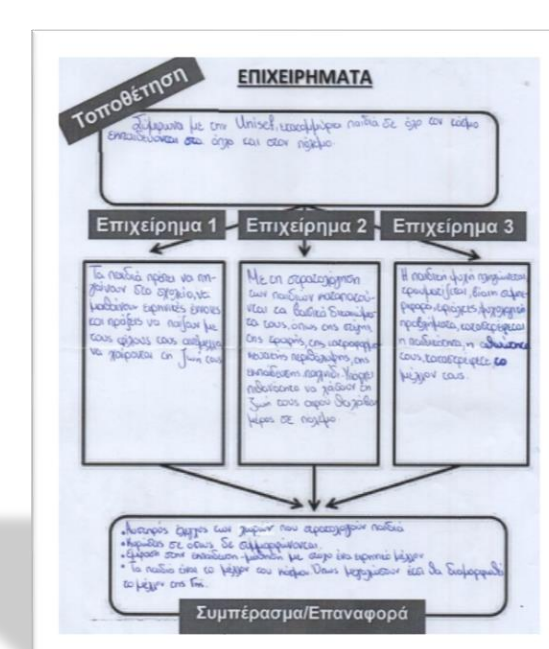 ΕΠΙΧΕΙΡΗΜΑΤΑ
Τοποθέτηση
Σύμφωνα με την Unisef, εκατομμύρια παιδιά σε όλο τον κόσμο
εκπαιδεύονται στα όπλα και στον πόλεμο.
Επιχείρημα 1
Επιχείρημα 2
Επιχείρημα 3
Τα παιδιά πρέπει να πη-
γαίνουν στο σχολείο, να
μαθαίνουν ειρηνικές έννοιες
και πράξεις να παίζουν με
τους φίλους τους
να χαίρονται τη ζωή τους
Με τη στρατολόγηση
των παιδιών καταπατού-
νται τα βασικά δικαιώμα-
τα τους, όπως της στέγης,
της τροφής, της ιατροφαρμα-
κευτικής περίθαλψης, της
εκπαίδευσης παιχνιδι.
πιθανότητα να χάσουν τη
ζωή τους αφού θα λάβουν
μέρος σε πόλεμο.
Η παιδική ψυχή πληγώνεται,
τραυματίζεται, βίαιη συμπε-
ριφορά, εφιάλτες, ψυχολογικά
προβλήματα, καταστρέφεται
η παιδικότητα, η αθωότητα
τους, καταστρέφεται το
μέλλον τους.
• Αυστηρός έλεγχος των χωρών που στρατολογούν παιδιά
• Κυρώσεις σε όσους δε συμμορφώνονται
• Έμφαση στην εκπαίδευση-μάθηση με στόχο ένα ειρηνικό μέλλον
• Τα παιδιά είναι το μέλλον του κόσμου. Όπως μεγαλώσουν έτσι θα διαμορφωθεί
το μέλλον της Γης.
Συμπέρασμα/Επαναφορά